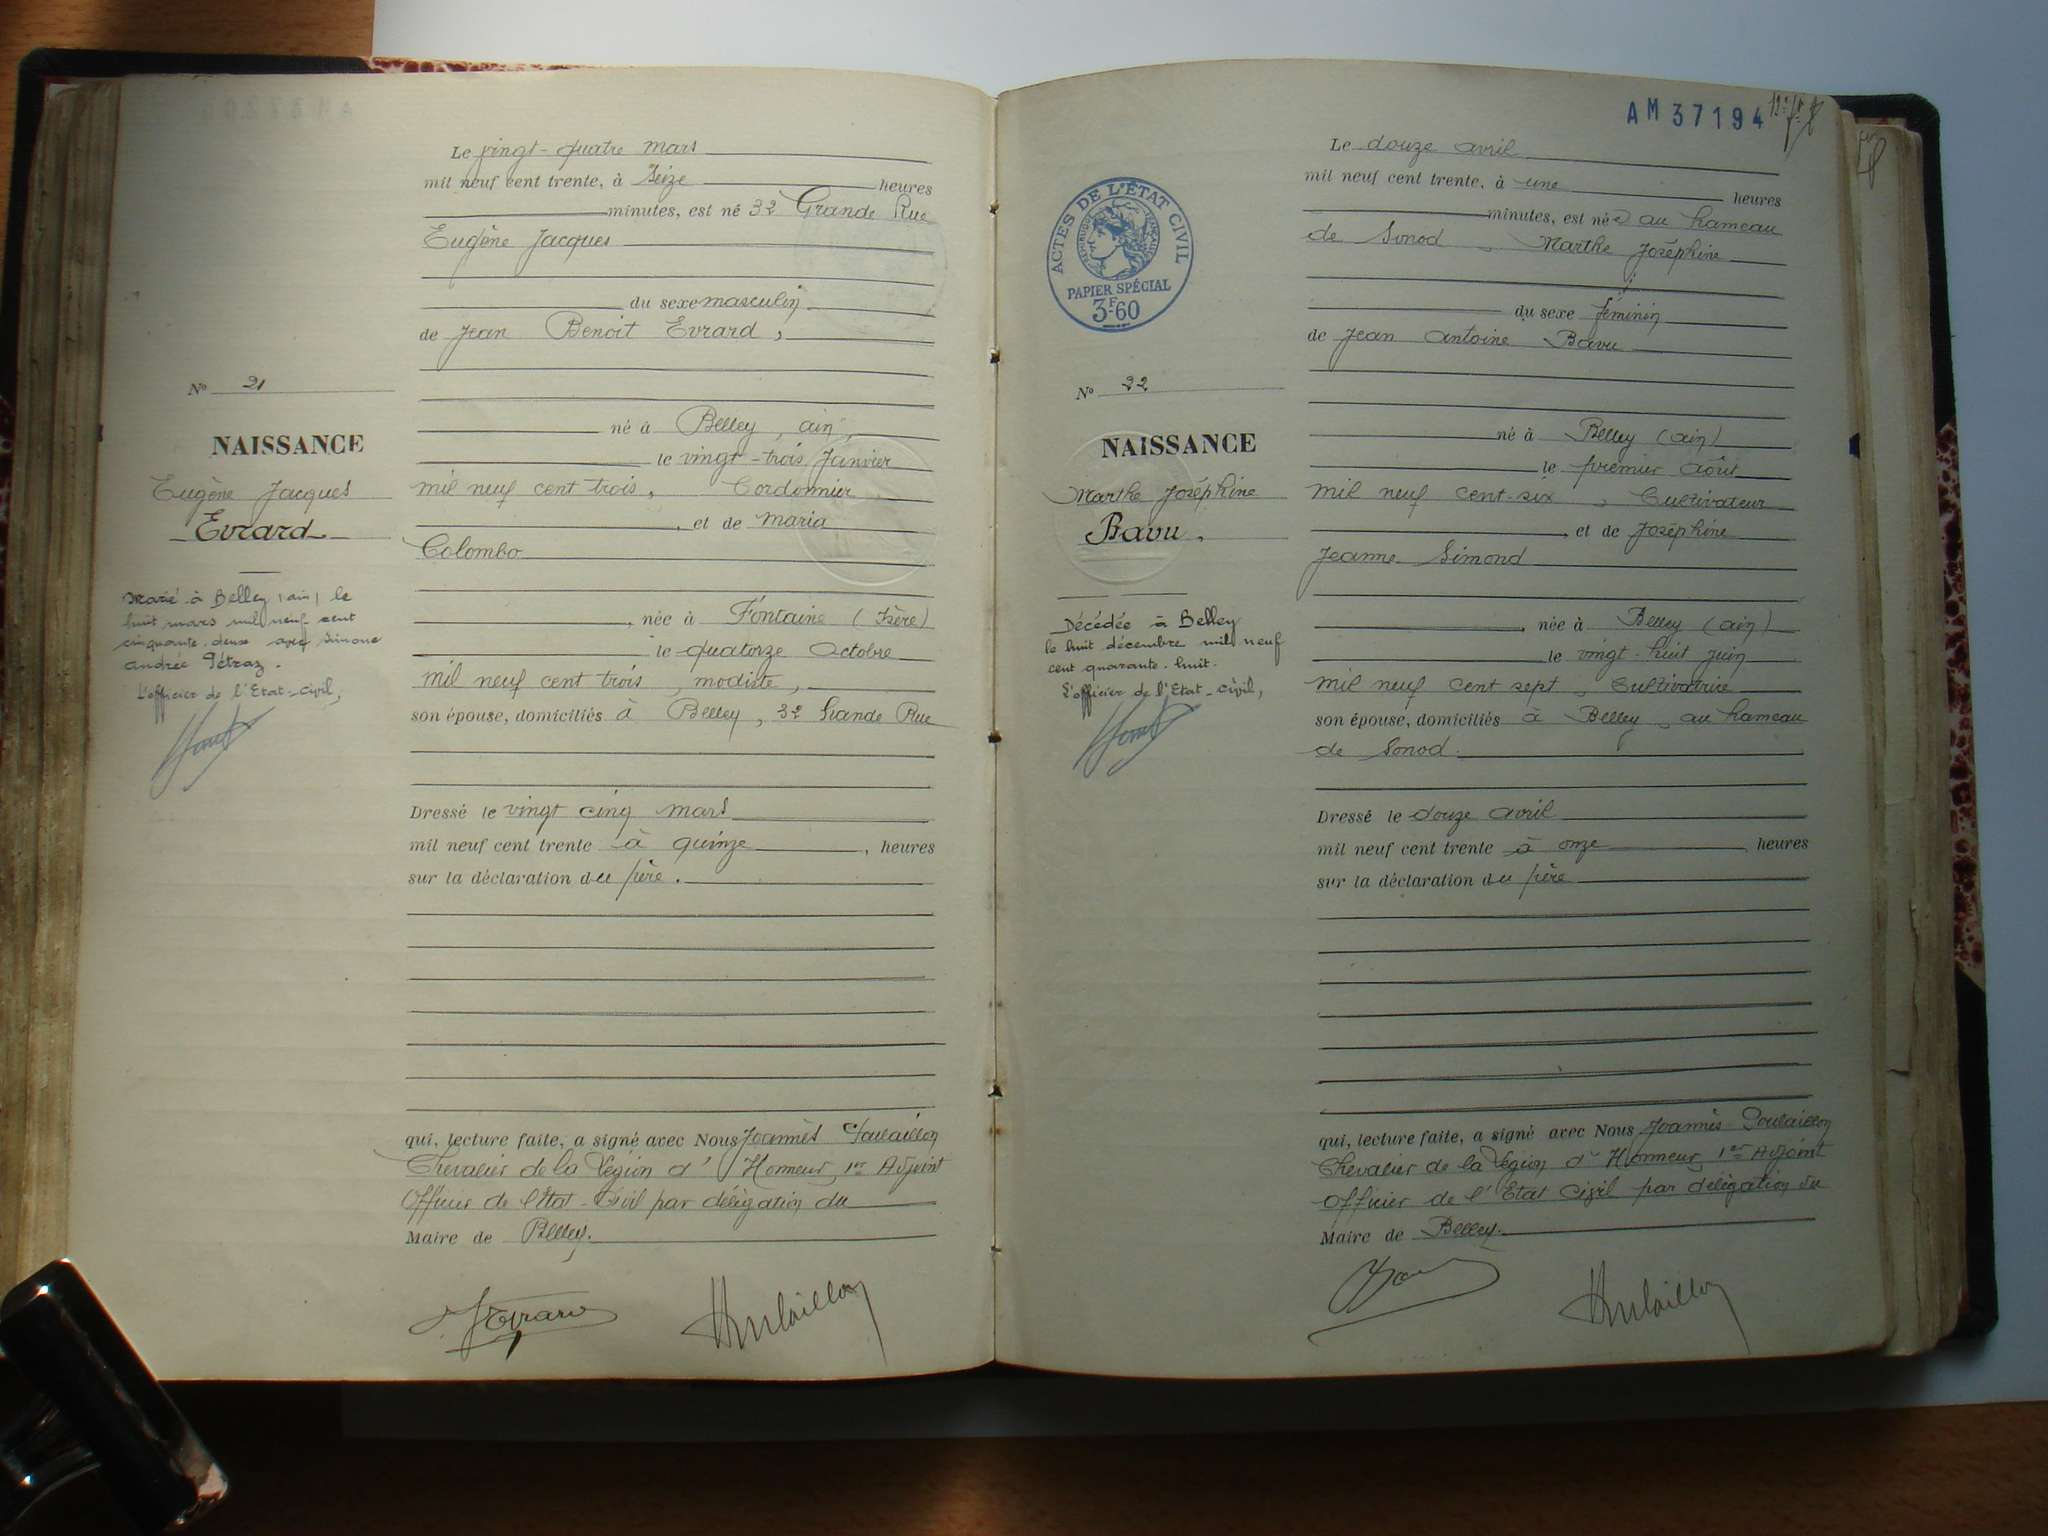 Le vingt-quatre mars
mil neuf cent trente, à Seize heures
minutes, est né 32 Grande Rue
Eugène Jacques
du sexe masculin
de Jean Benoit Evrard,
né à Belley, ain,
le vingt-trois Janvier
mil neuf cent trois, Cordonnier
, et de Maria
Colombo
, née à Fontaine (Isère)
le quatorze Octobre
mil neuf cent trois, modiste,
son épouse, domiciliés à Belley, 32 Grande Rue
Dressé le vingt cinq mars
mil neuf cent trente à quinze, heures
sur la déclaration du père.
qui, lecture faite, a signé avec Nous Joannès Poulaillon
Chevalier de la Légion d'Honneur, 1er Adjoint
Officier de l'Etat-Civil par délégation du
Maire de Belley.
No 21
NAISSANCE
Eugène Jacques
Evrard
Marié à Belley (ain) le
huit mars mil neuf cent
cinquante-deux avec Simone
andrée Pétraz.
L'officier de l'Etat-civil,
AM 37194
ACTES DE L'ÉTAT CIVIL
RÉPUBLIQUE FRANÇAISE
PAPIER SPÉCIAL
3F60
Le douze avril
mil neuf cent trente, à une heures
minutes, est née au hameau
de Sonod, Marthe Joséphine
du sexe féminin
de Jean Antoine Bavu
né à Belley (ain)
le premier août
mil neuf cent-six, Cultivateur
, et de Joséphine
Jeanne Simond
, née à Belley (ain)
le vingt-huit juin
mil neuf cent sept, Cultivatrice
son épouse, domiciliés à Belley, au hameau
de Sonod.
Dressé le douze avril
mil neuf cent trente à onze heures
sur la déclaration du père
qui, lecture faite, a signé avec Nous Joannès Poulaillon
Chevalier de la Légion d'Honneur, 1er Adjoint
Officier de l'Etat Civil par délégation du
Maire de Belley.
No 22
NAISSANCE
Marthe Joséphine
Bavu,
Décédée à Belley
le huit décembre mil neuf
cent quarante-huit.
L'officier de l'Etat-civil,